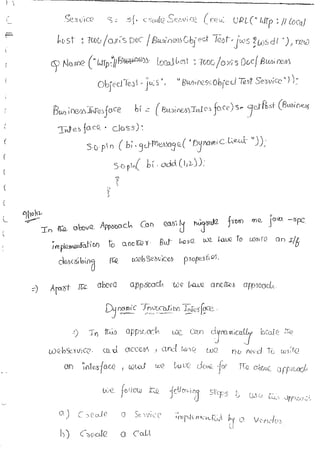 Service s = sf. create Service (new URL("http://local
host : 7001/axis DOC /BusinessObject Test.jws ?wsdl"), new
Q Name ("http://localhost : 7001/axis Doc/ Business
ObjectTest.jws", "Business Object Test Service"));
Business Interface bi = (Business Interface) s. getPort (Business
Interface. class);
S.o.pln ( bi.getMessage( "Dynamic Client"));
S.o.pln( bi.add(1,2));
}
}
In the above Approach Can easily migrate from one java-rpc
implementation to another. But here we have to write an I/f
describing the webservices properties.
=> Apart the above approach we have another approach.
Dynamic Invocation Interface.
1) In this approach we can dynamically locate the
webservice and access, and here we no need to write
an interface, what we have done for the above approach
we follow the following steps to use this approach
a) Create a Service implemented by a Vendor
b) Create a Call